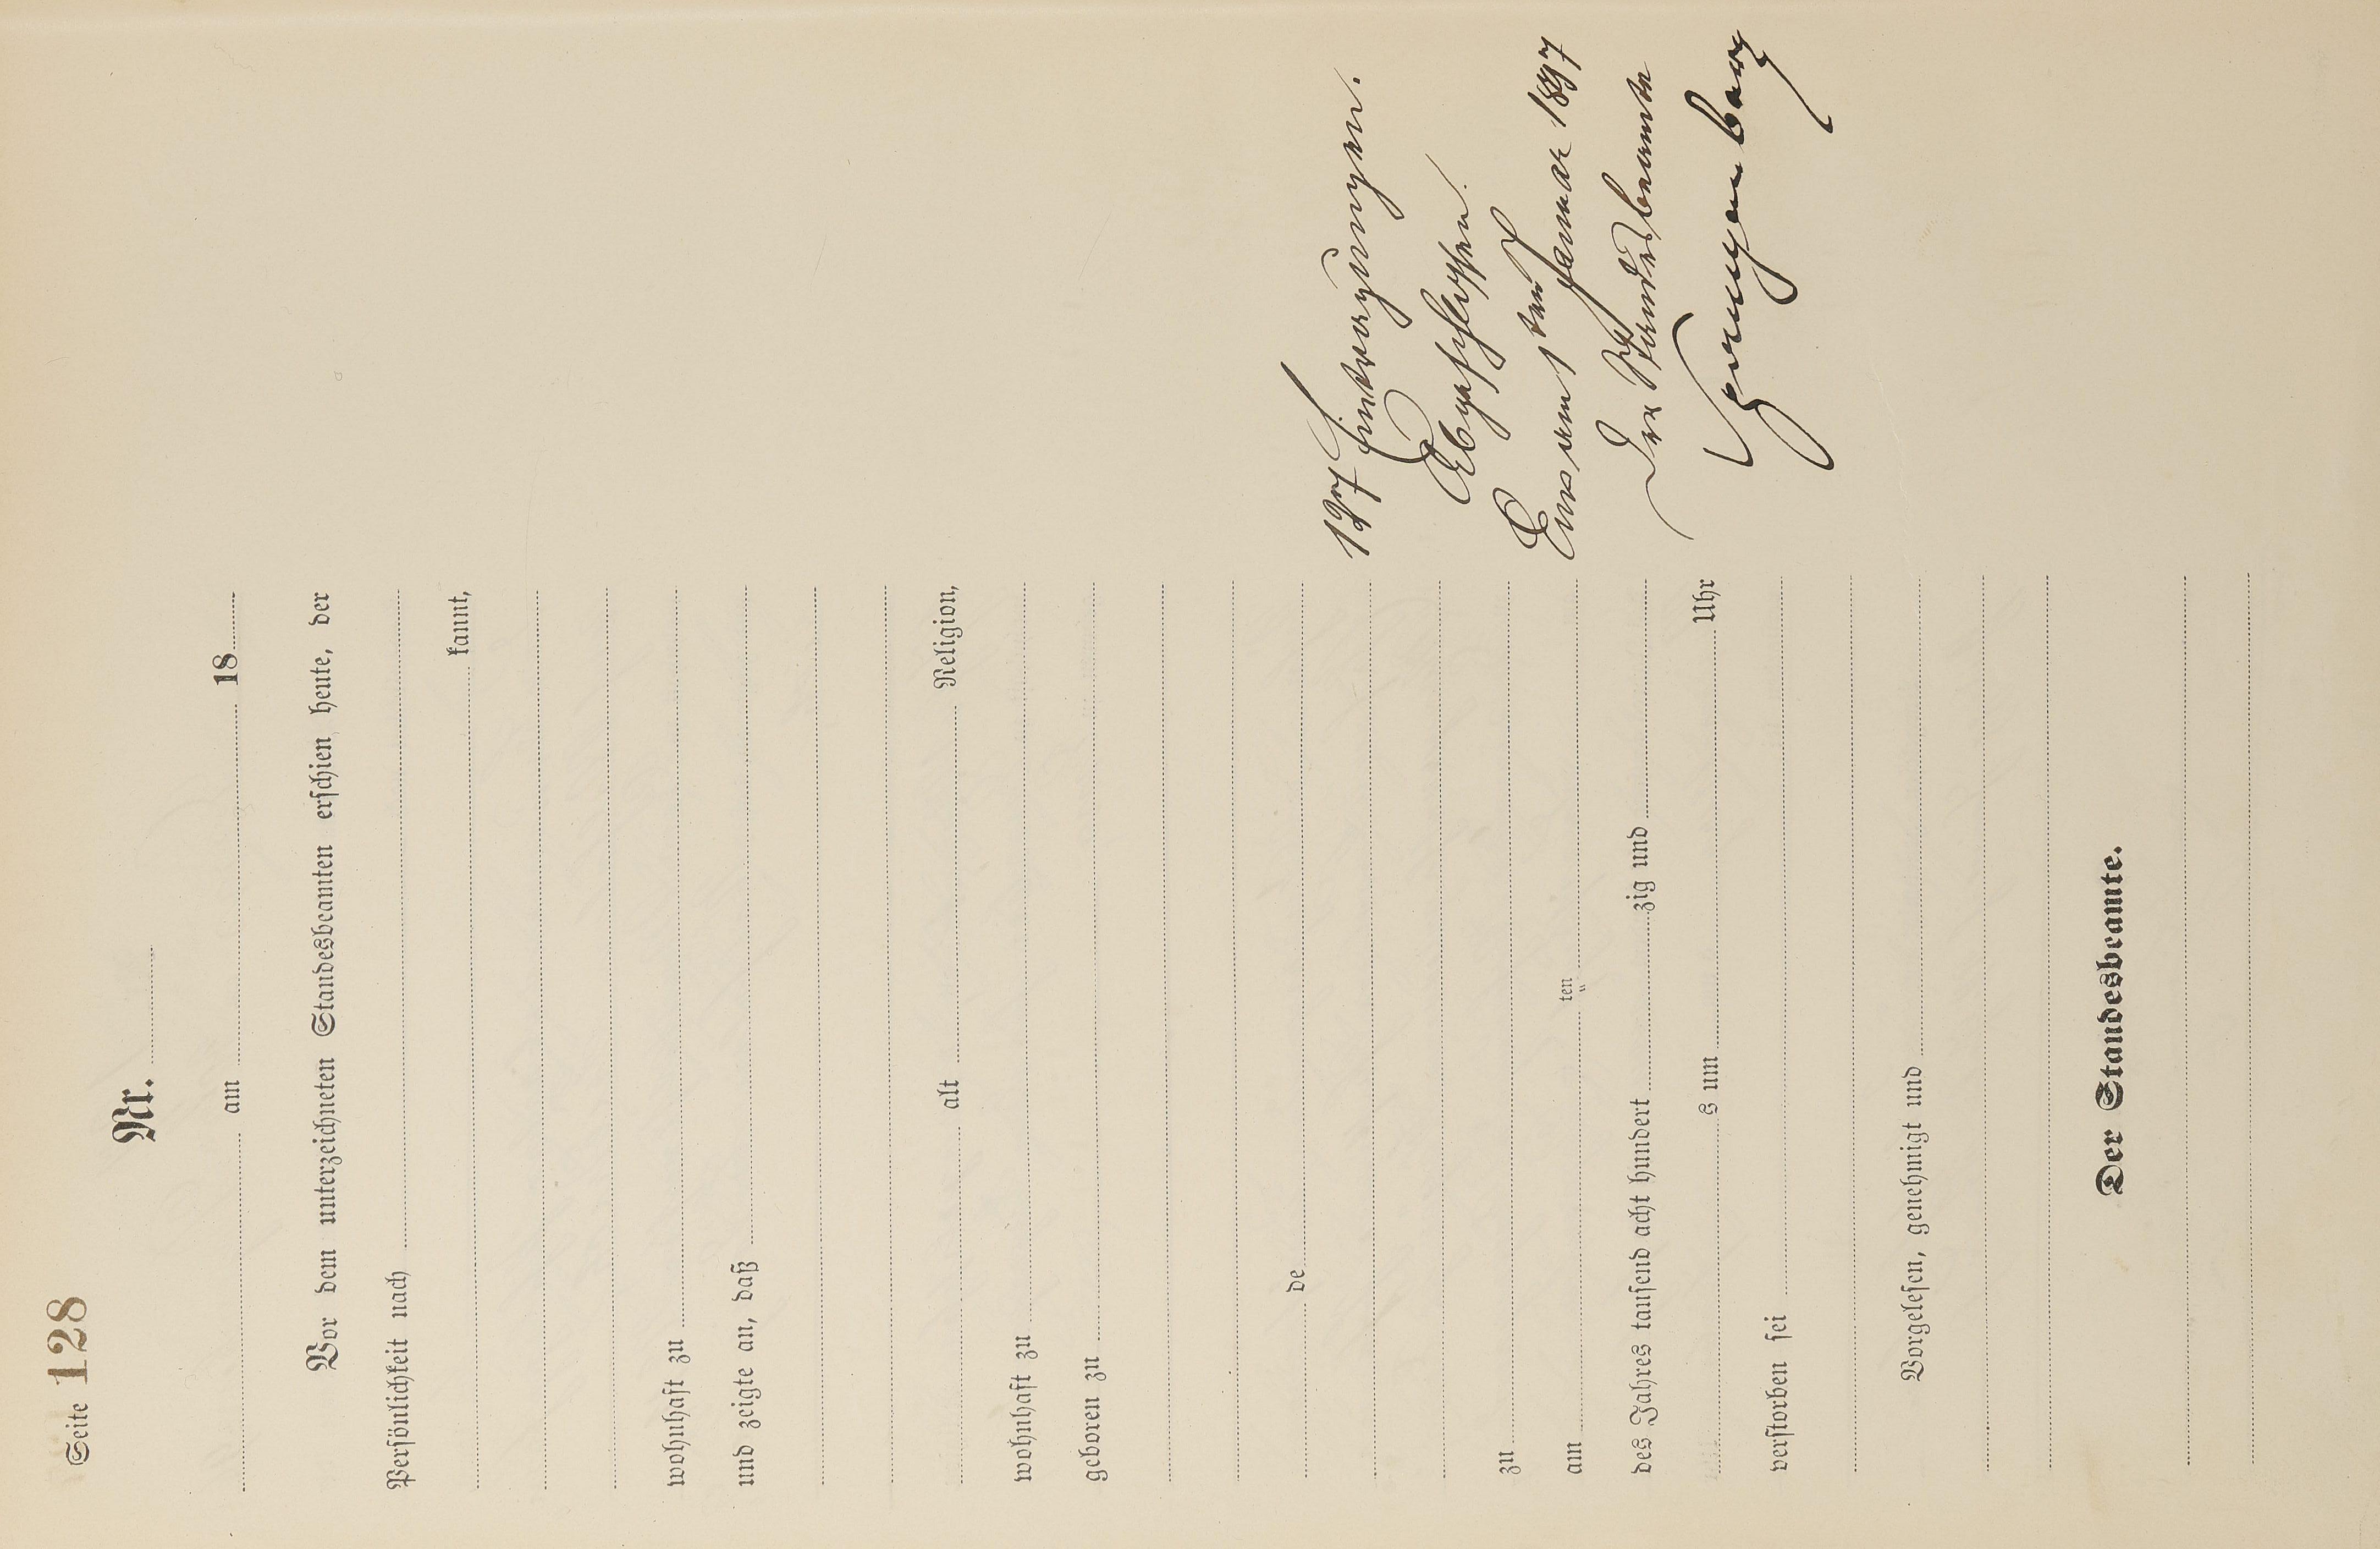 Seite 128
Nr.
am 18
Vor dem unterzeichneten Standesbeamten erschien heute, der
Persönlichkeit nach
kannt,
wohnhaft zu
und zeigte an, daß
alt Religion,
wohnhaft zu
geboren zu
de
zu
am ten
des Jahres tausend acht hundert zig und
s um Uhr
verstorben sei
Vorgelesen, genehmigt und
Der Standesbeamte.
127 Eintragungen.
Abgeschlossen.
am 1ten Januar 1897
Der Standesbeamte